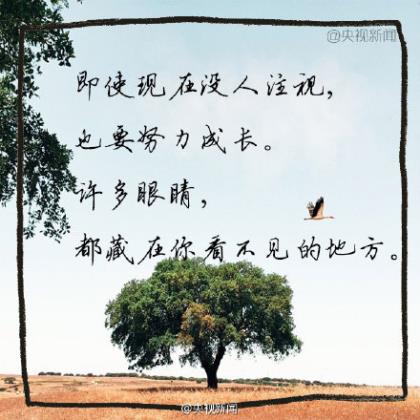 @央视新闻
即使现在没人注视，
也要努力成长。
许多眼睛，
都藏在你看不见的地方。
@央视新闻